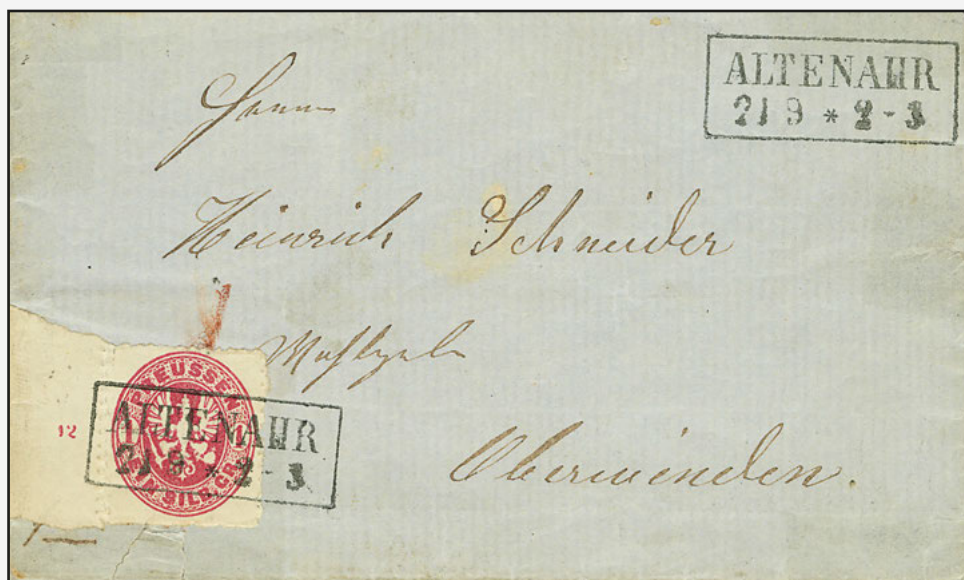 ALTENAHR
21 9 * 2 - 3
Herrn
Heinrich Schneider
Oberwinden.
PREUSSEN
EIN SILB.GR.
12
ALTENAHR
21 9 * 2 - 3